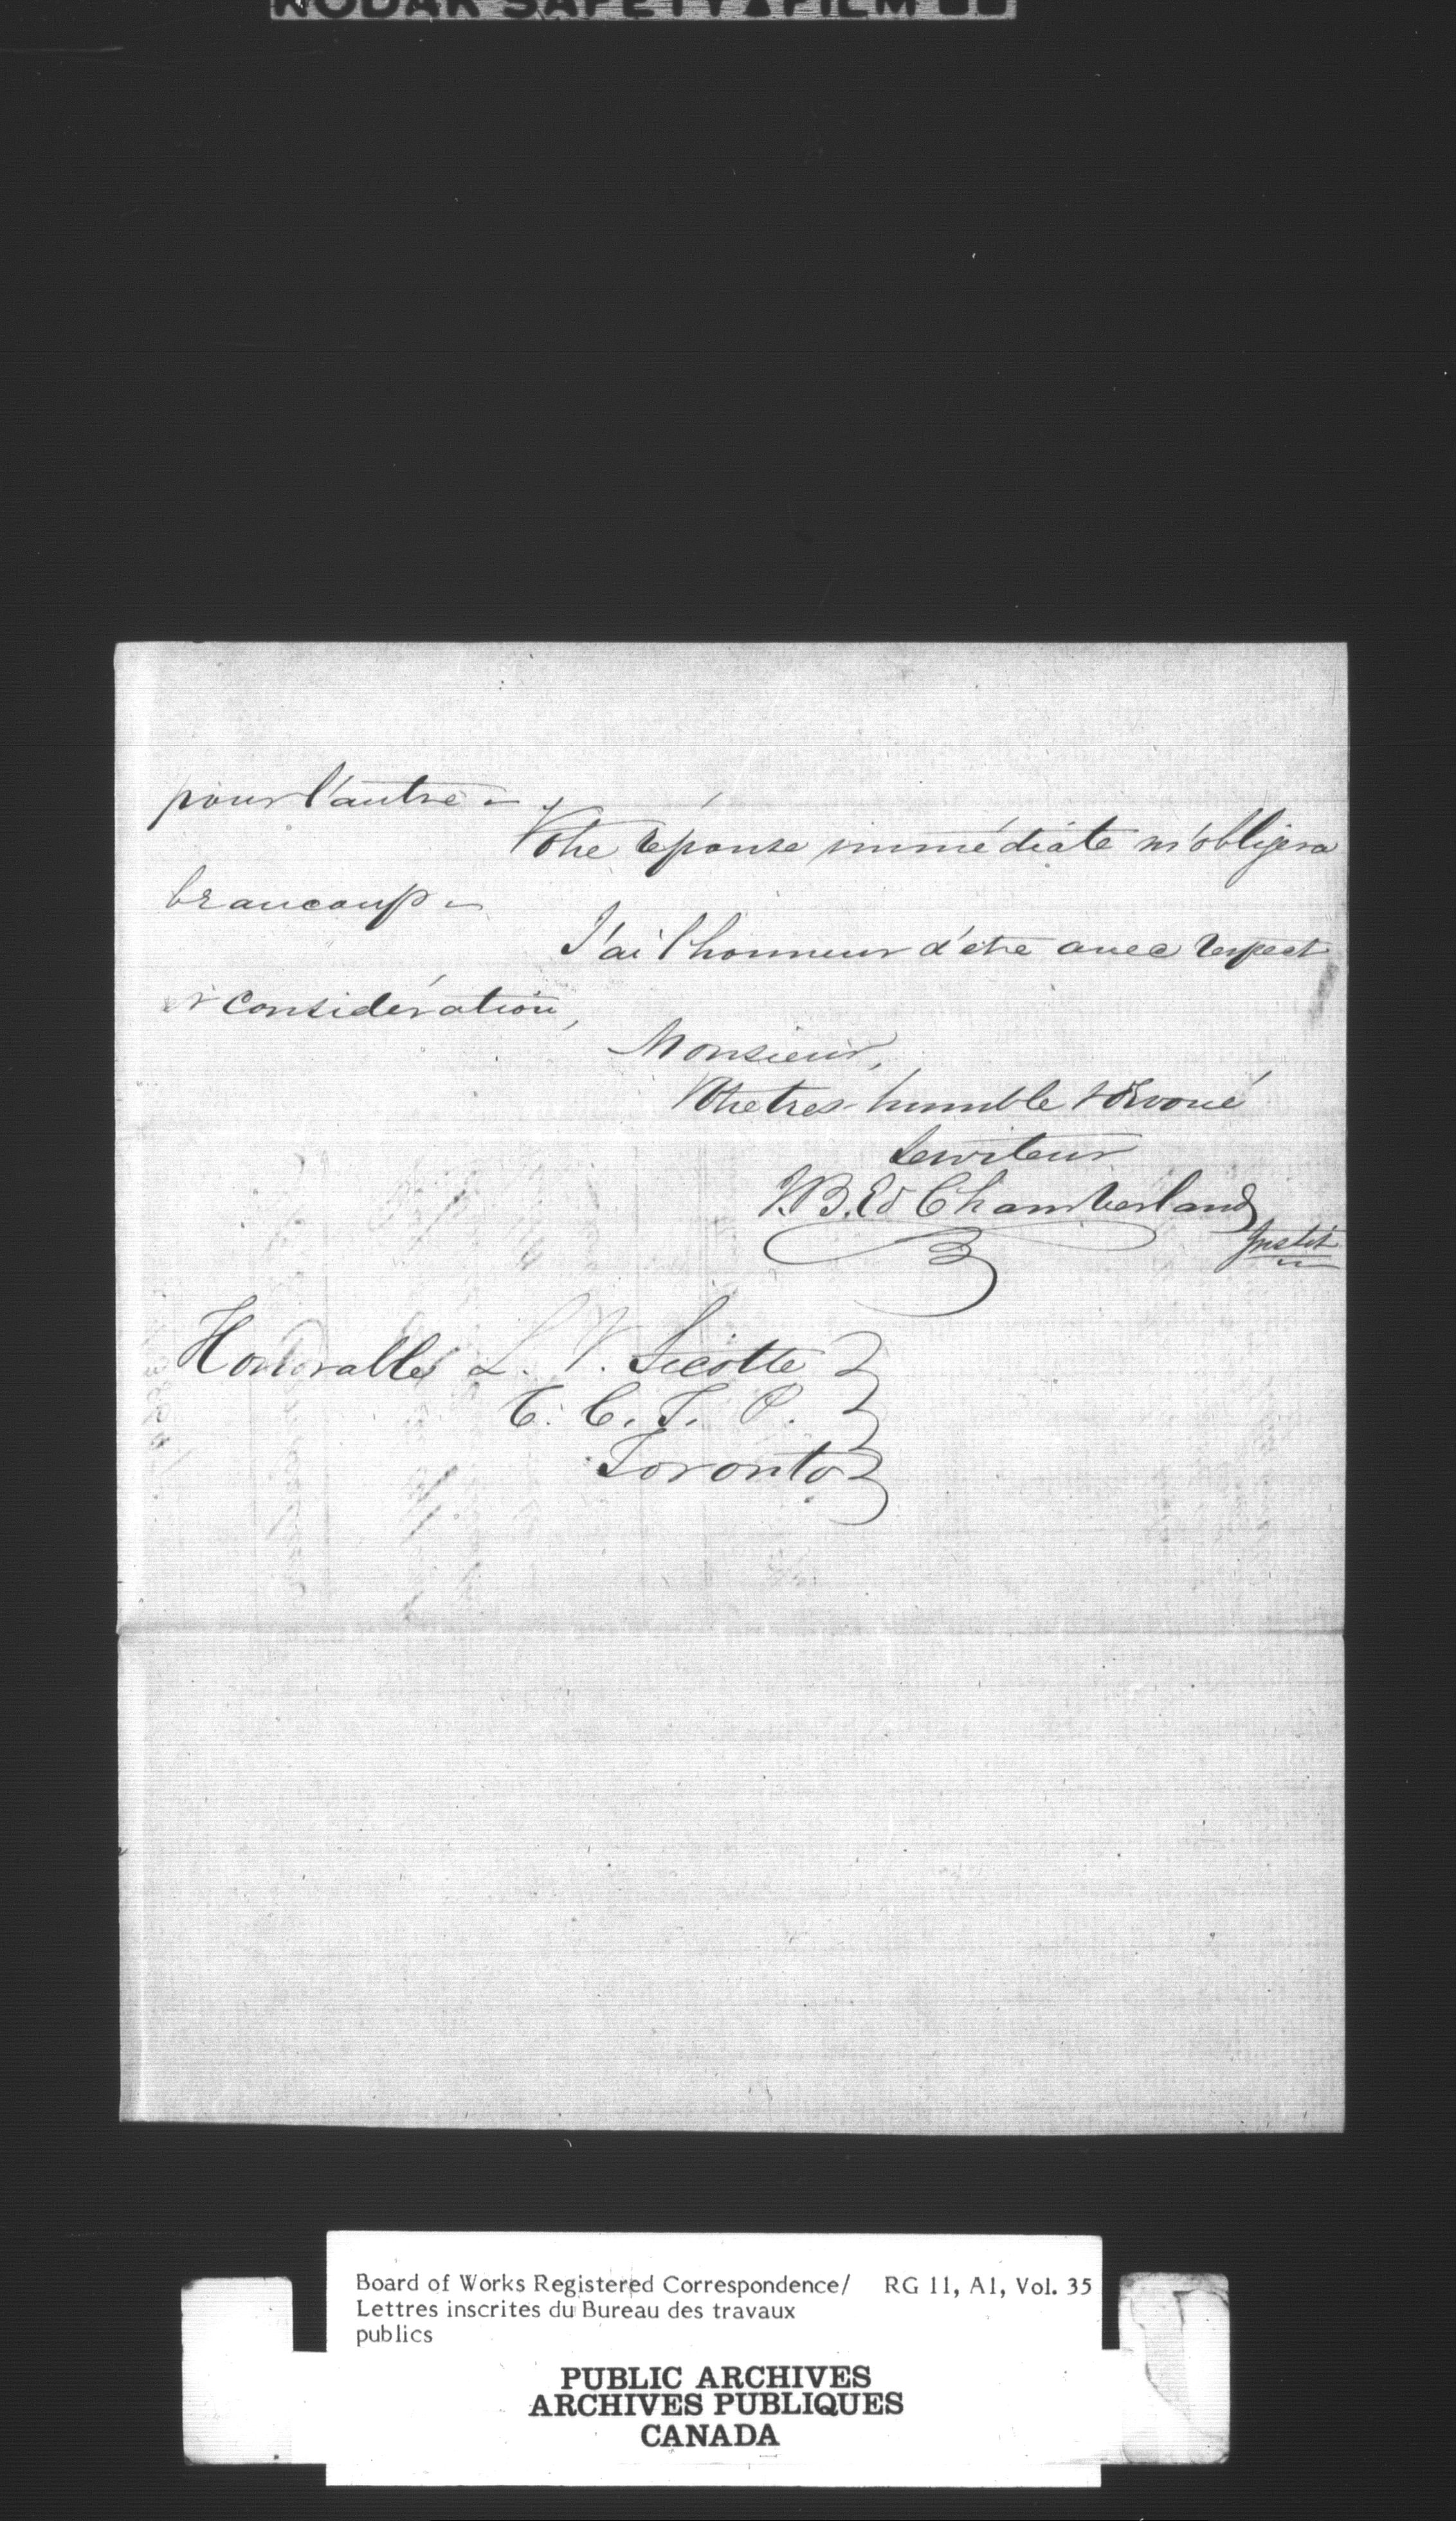 KODAK SAFETY FILM
pour l'autre -
Votre réponse immédiate m'obligera
beaucoup -
J'ai l'honneur d'être avec respect
et considération,
Monsieur,
Votre très-humble & dévoué
Serviteur
J.B. Ed Chamberland
Instit
Honorable L. V. Sicotte
C. C. T. P.
Toronto
Board of Works Registered Correspondence/ RG 11, A1, Vol. 35
Lettres inscrites du Bureau des travaux
publics
PUBLIC ARCHIVES
ARCHIVES PUBLIQUES
CANADA